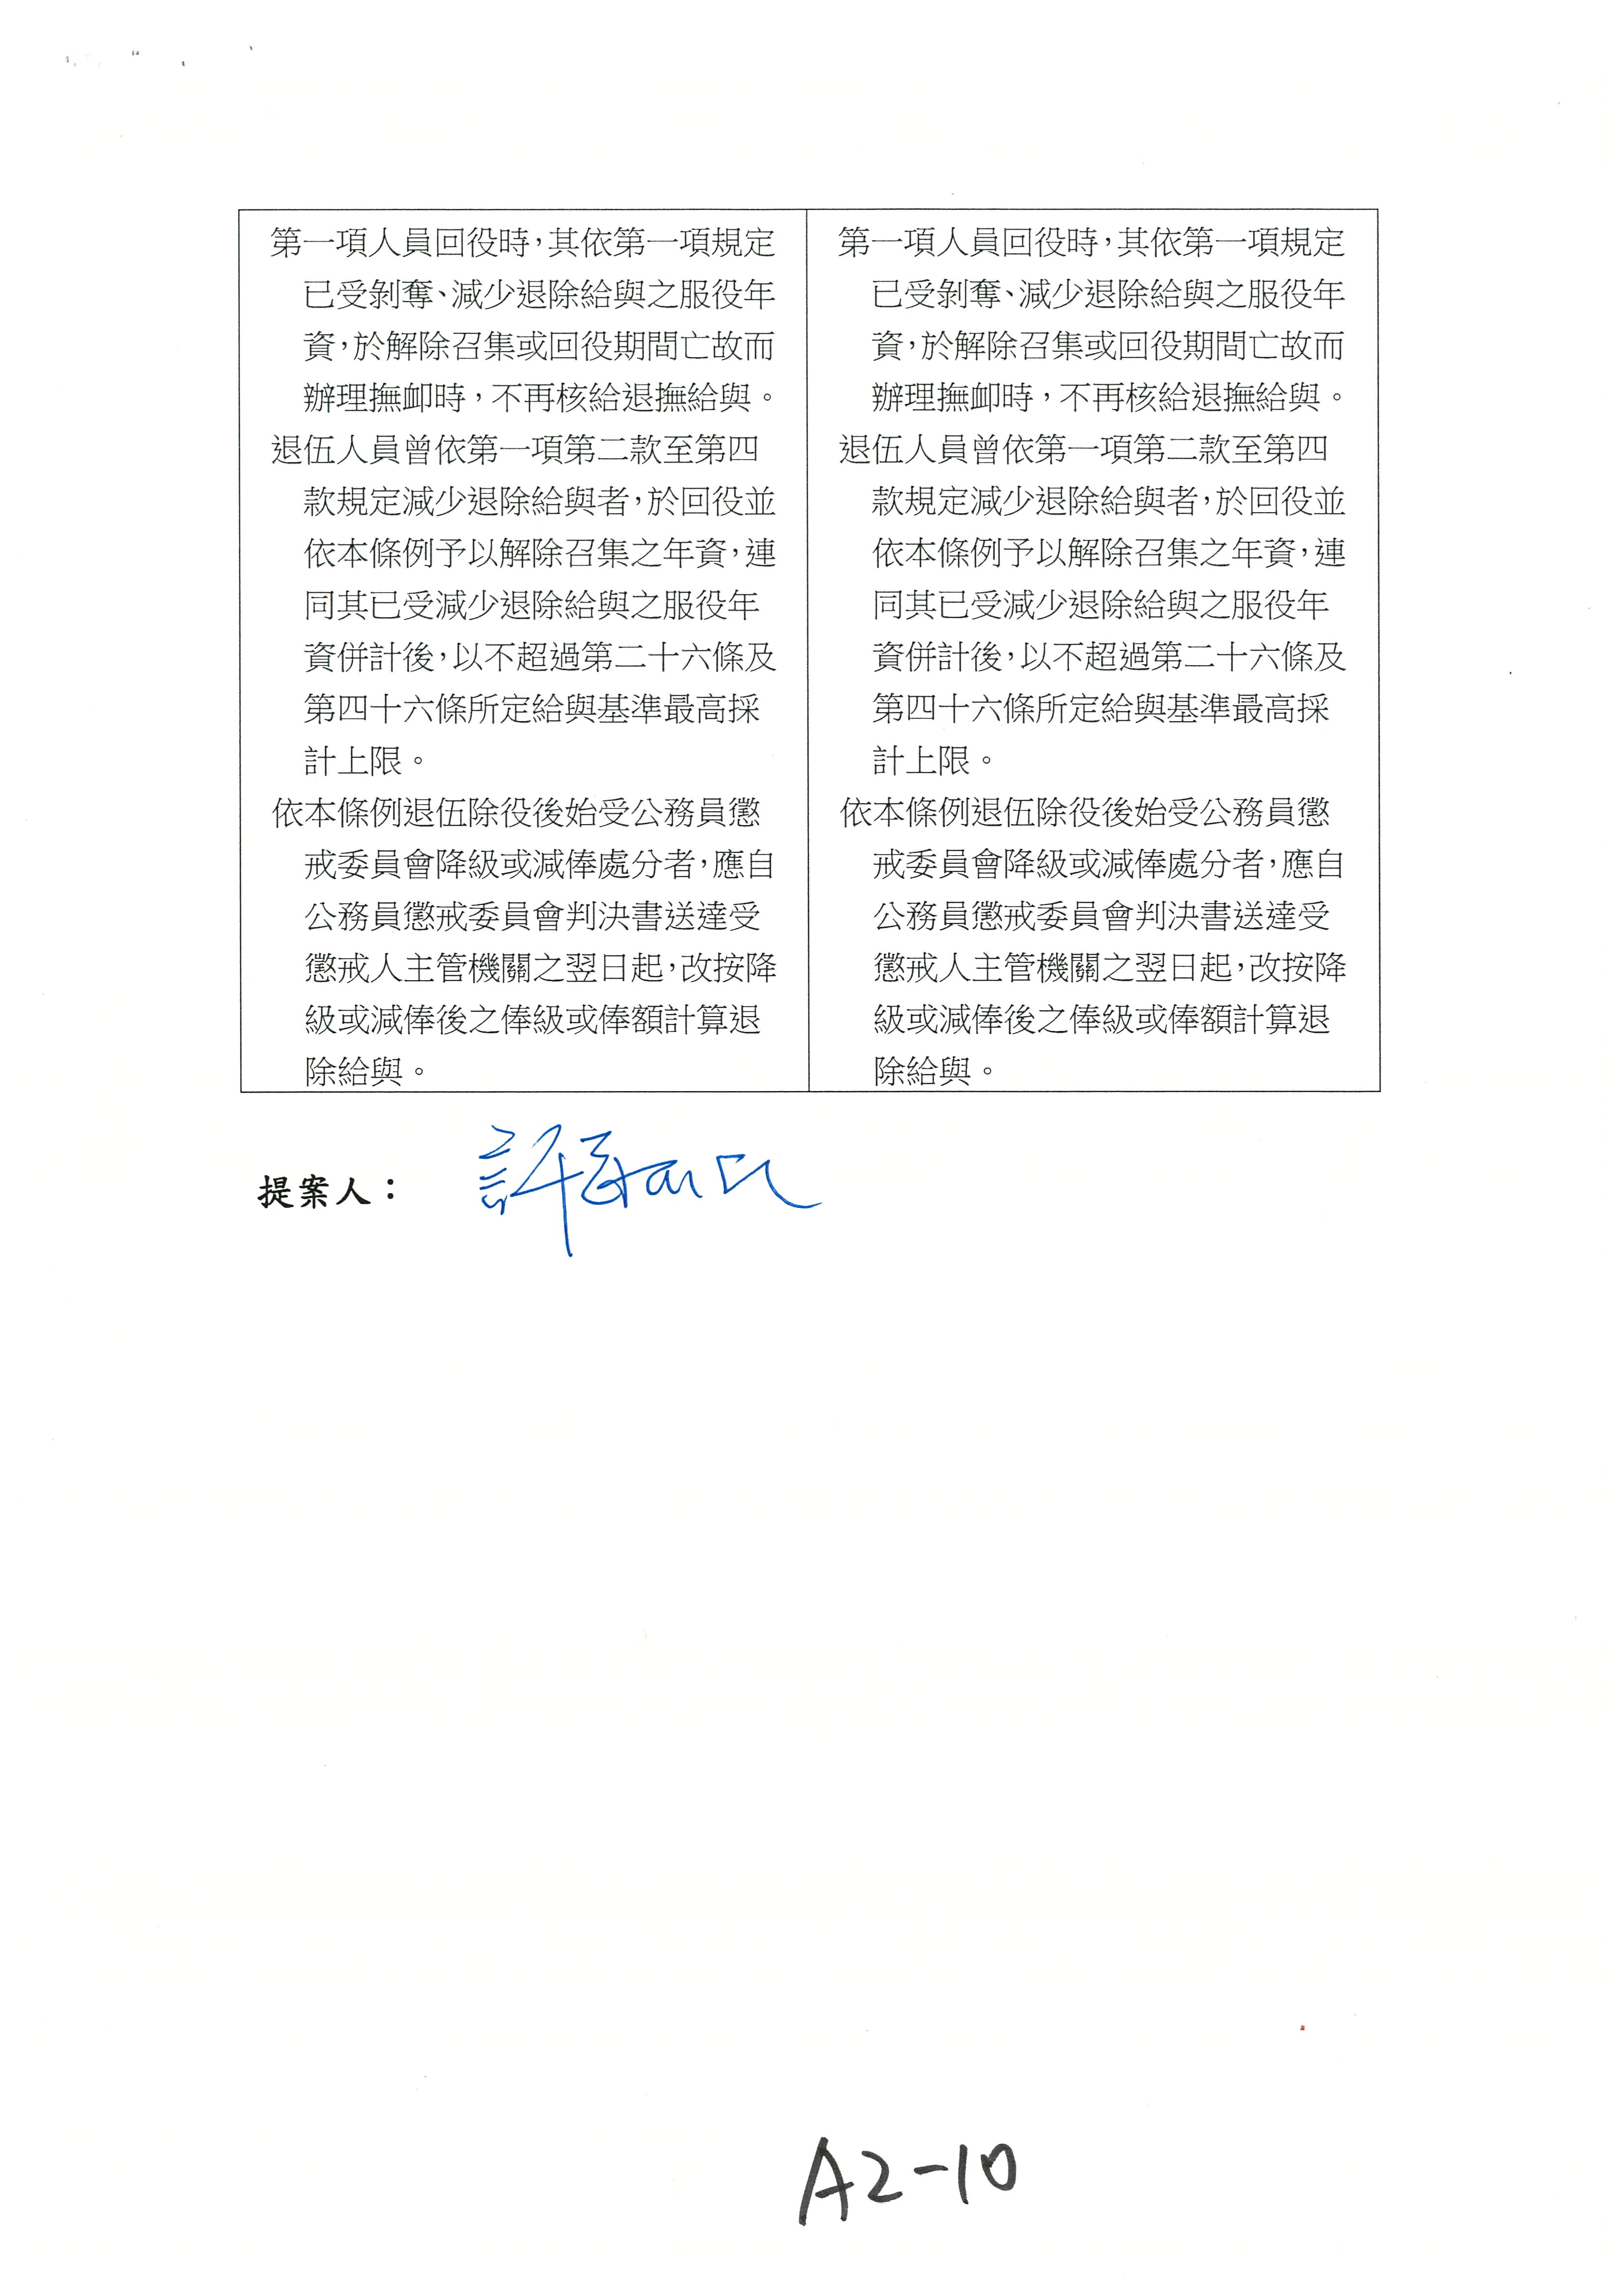 第一項人員回役時,其依第一項規定
已受剝奪、減少退除給與之服役年
資,於解除召集或回役期間亡故而
辦理撫卹時,不再核給退撫給與。
退伍人員曾依第一項第二款至第四
款規定減少退除給與者,於回役並
依本條例予以解除召集之年資,連
同其已受減少退除給與之服役年
資併計後,以不超過第二十六條及
第四十六條所定給與基準最高採
計上限。
依本條例退伍除役後始受公務員懲
戒委員會降級或減俸處分者,應自
公務員懲戒委員會判決書送達受
懲戒人主管機關之翌日起,改按降
級或減俸後之俸級或俸額計算退
除給與。
第一項人員回役時,其依第一項規定
已受剝奪、減少退除給與之服役年
資,於解除召集或回役期間亡故而
辦理撫卹時,不再核給退撫給與。
退伍人員曾依第一項第二款至第四
款規定減少退除給與者,於回役並
依本條例予以解除召集之年資,連
同其已受減少退除給與之服役年
資併計後,以不超過第二十六條及
第四十六條所定給與基準最高採
計上限。
依本條例退伍除役後始受公務員懲
戒委員會降級或減俸處分者,應自
公務員懲戒委員會判決書送達受
懲戒人主管機關之翌日起,改按降
級或減俸後之俸級或俸額計算退
除給與。
提案人:
A2-10